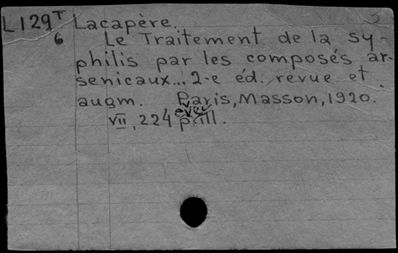 L129T Lacapère.
6 Le Traitement de la sy-
philis par les composés ar-
senicaux... 2-e éd. revue et
augm. Paris, Masson, 1920.
VII, 224 p. ill.